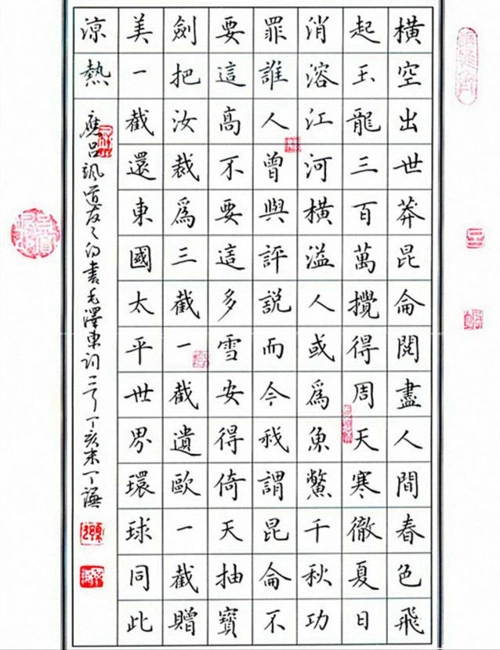 橫空出世莽昆侖閱盡人間春色飛
起玉龍三百萬攪得周天寒徹夏日
消溶江河橫溢人或為魚鱉千秋功
罪誰人曾與評說而今我謂昆侖不
要這高不要這多雪安得倚天抽寶
劍把汝裁為三截一截遺歐一截贈
美一截還東國太平世界環球同此
涼熱
應呂颯道友之書毛澤東詞二丁亥末丁謙